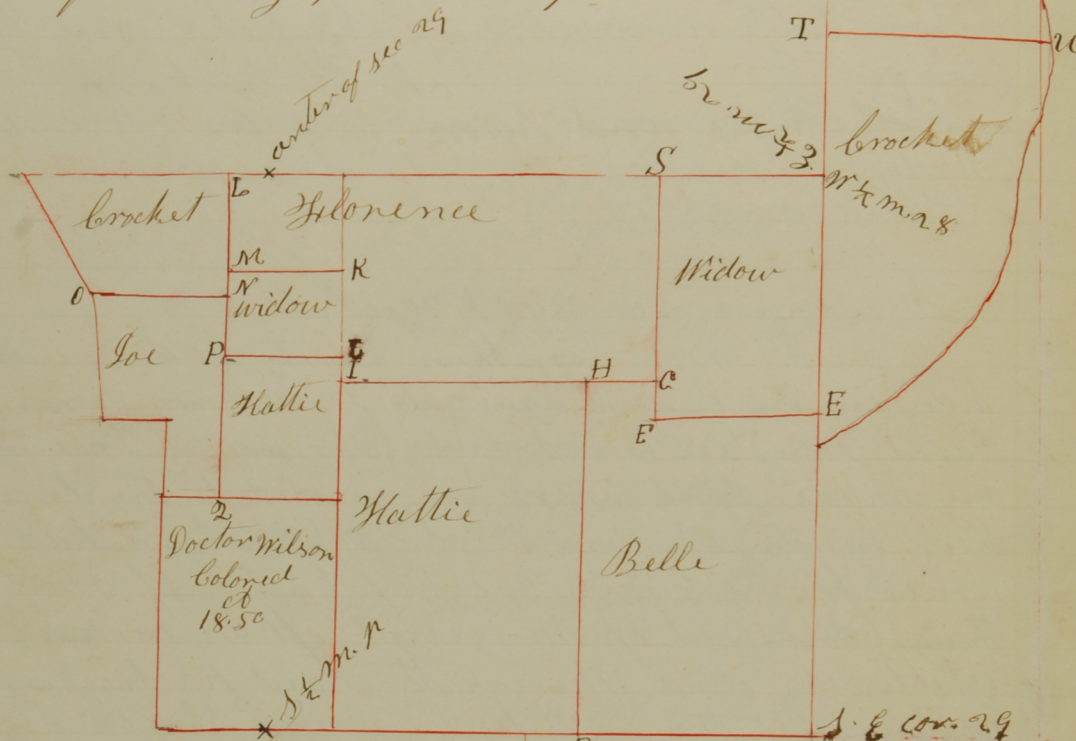 center of sec 29
T
U
Crocket
S
W ¼ m. 28
L
Crocket
Florence
M
K
Widow
O
N
widow
Joe
P
L
I.
H
G
Hattie
E
F
2
Hattie
Doctor Wilson
Colored
18.50
Belle
S ½ m. P
S. E cor. 29